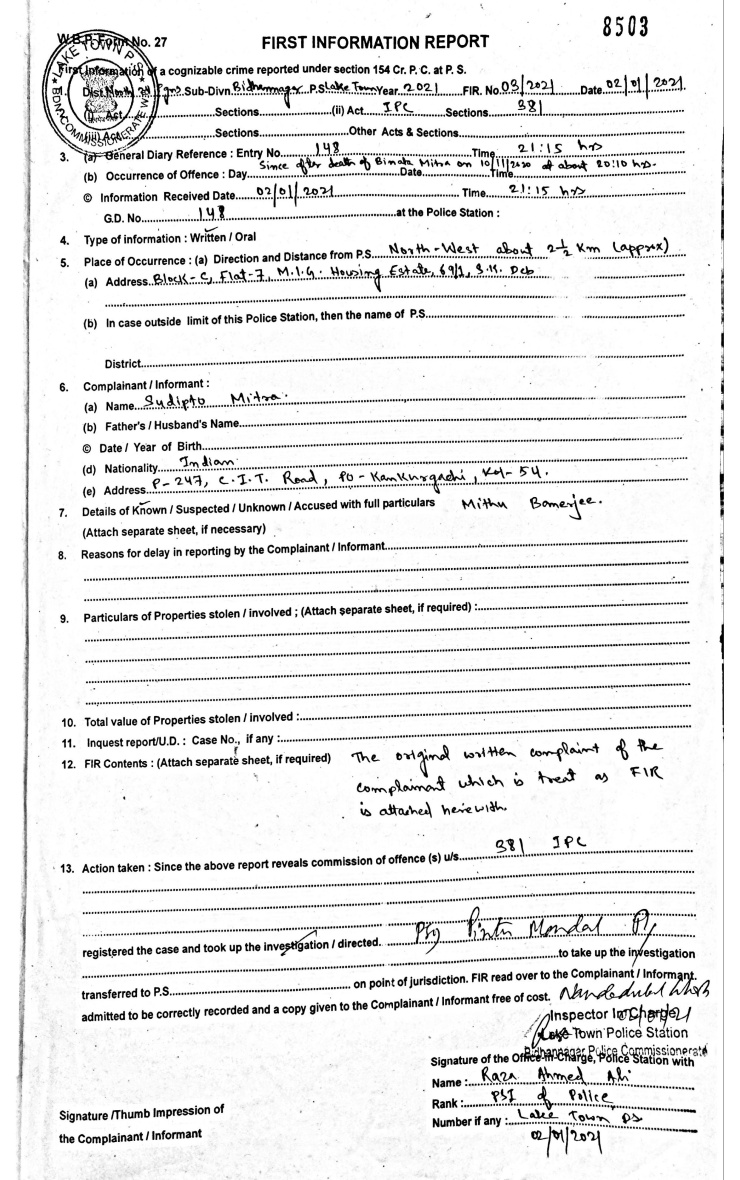 8503
W.B.P. Form No. 27
FIRST INFORMATION REPORT
First Information of a cognizable crime reported under section 154 Cr. P. C. at P. S.
1. Dist. North 24 Pgns. Sub-Divn. Bidhannagar P.S Lake Town Year 2021 FIR. No. 03/2021 Date 02/01/2021
(i) Act Sections (ii) Act IPC Sections 381
(iii) Act Sections Other Acts & Sections
3. (a) General Diary Reference : Entry No. 148 Time 21:15 hrs
(b) Occurrence of Offence : Day Since after death of Binata Mitra on 10/11/2020 at about 20:10 hrs. Date Time
© Information Received Date 02/01/2021 Time 21:15 hrs
G.D. No. 148 at the Police Station :
4. Type of information : Written / Oral
5. Place of Occurrence : (a) Direction and Distance from P.S. North-West about 2½ Km (approx)
(a) Address Block-C, Flat-7, M.I.G. Housing Estate, 69/1, S.K. Deb
(b) In case outside limit of this Police Station, then the name of P.S.
District
6. Complainant / Informant :
(a) Name Sudipto Mitra.
(b) Father's / Husband's Name
© Date / Year of Birth
(d) Nationality Indian
(e) Address P-247, C.I.T. Road, PO - Kankurgachi, Kol-54.
7. Details of Known / Suspected / Unknown / Accused with full particulars Mithu Banerjee.
(Attach separate sheet, if necessary)
8. Reasons for delay in reporting by the Complainant / Informant
9. Particulars of Properties stolen / involved ; (Attach separate sheet, if required) :
10. Total value of Properties stolen / involved :
11. Inquest report/U.D. : Case No., if any :
12. FIR Contents : (Attach separate sheet, if required) The original written complaint of the
complainant which is treat as FIR
is attached herewith.
13. Action taken : Since the above report reveals commission of offence (s) u/s 381 IPC
registered the case and took up the investigation / directed. PSI Pintu Mondal
to take up the investigation
transferred to P.S. on point of jurisdiction. FIR read over to the Complainant / Informant.
admitted to be correctly recorded and a copy given to the Complainant / Informant free of cost.
Inspector In Charge
Lake Town Police Station
Bidhannagar Police Commissionerate
Signature of the Office-in-Charge, Police Station with
Name : Raza Ahmed Ali
Rank : PSI of Police
Number if any : Lake Town PS
02/01/2021
Signature /Thumb Impression of
the Complainant / Informant